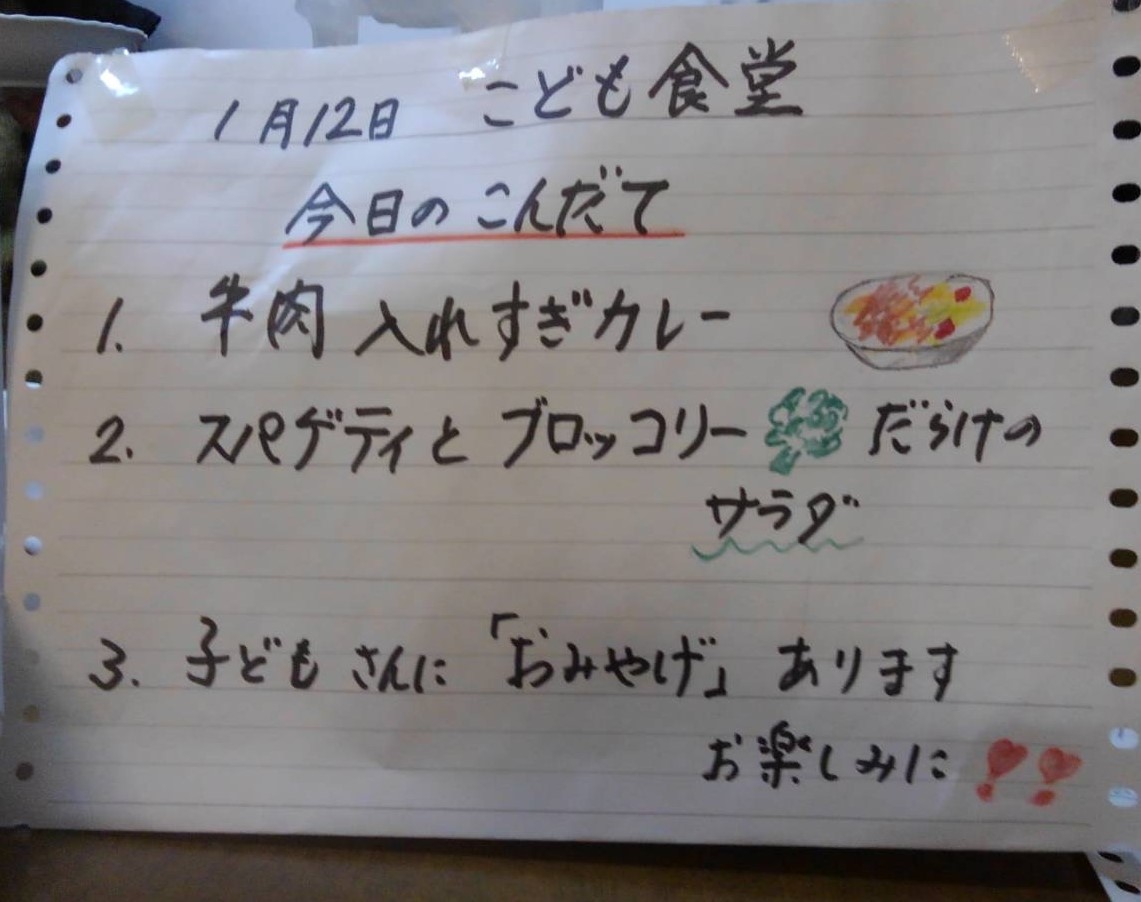 1月12日 こども食堂
今日のこんだて
1. 牛肉 入れすぎカレー
2. スパゲティと ブロッコリー だらけの
サラダ
3. 子どもさんに「おみやげ」あります
お楽しみに!!